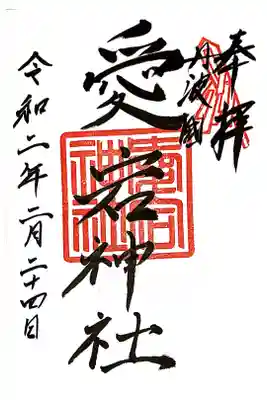 奉拝
丹波国
愛宕神社
令和二年二月二十四日